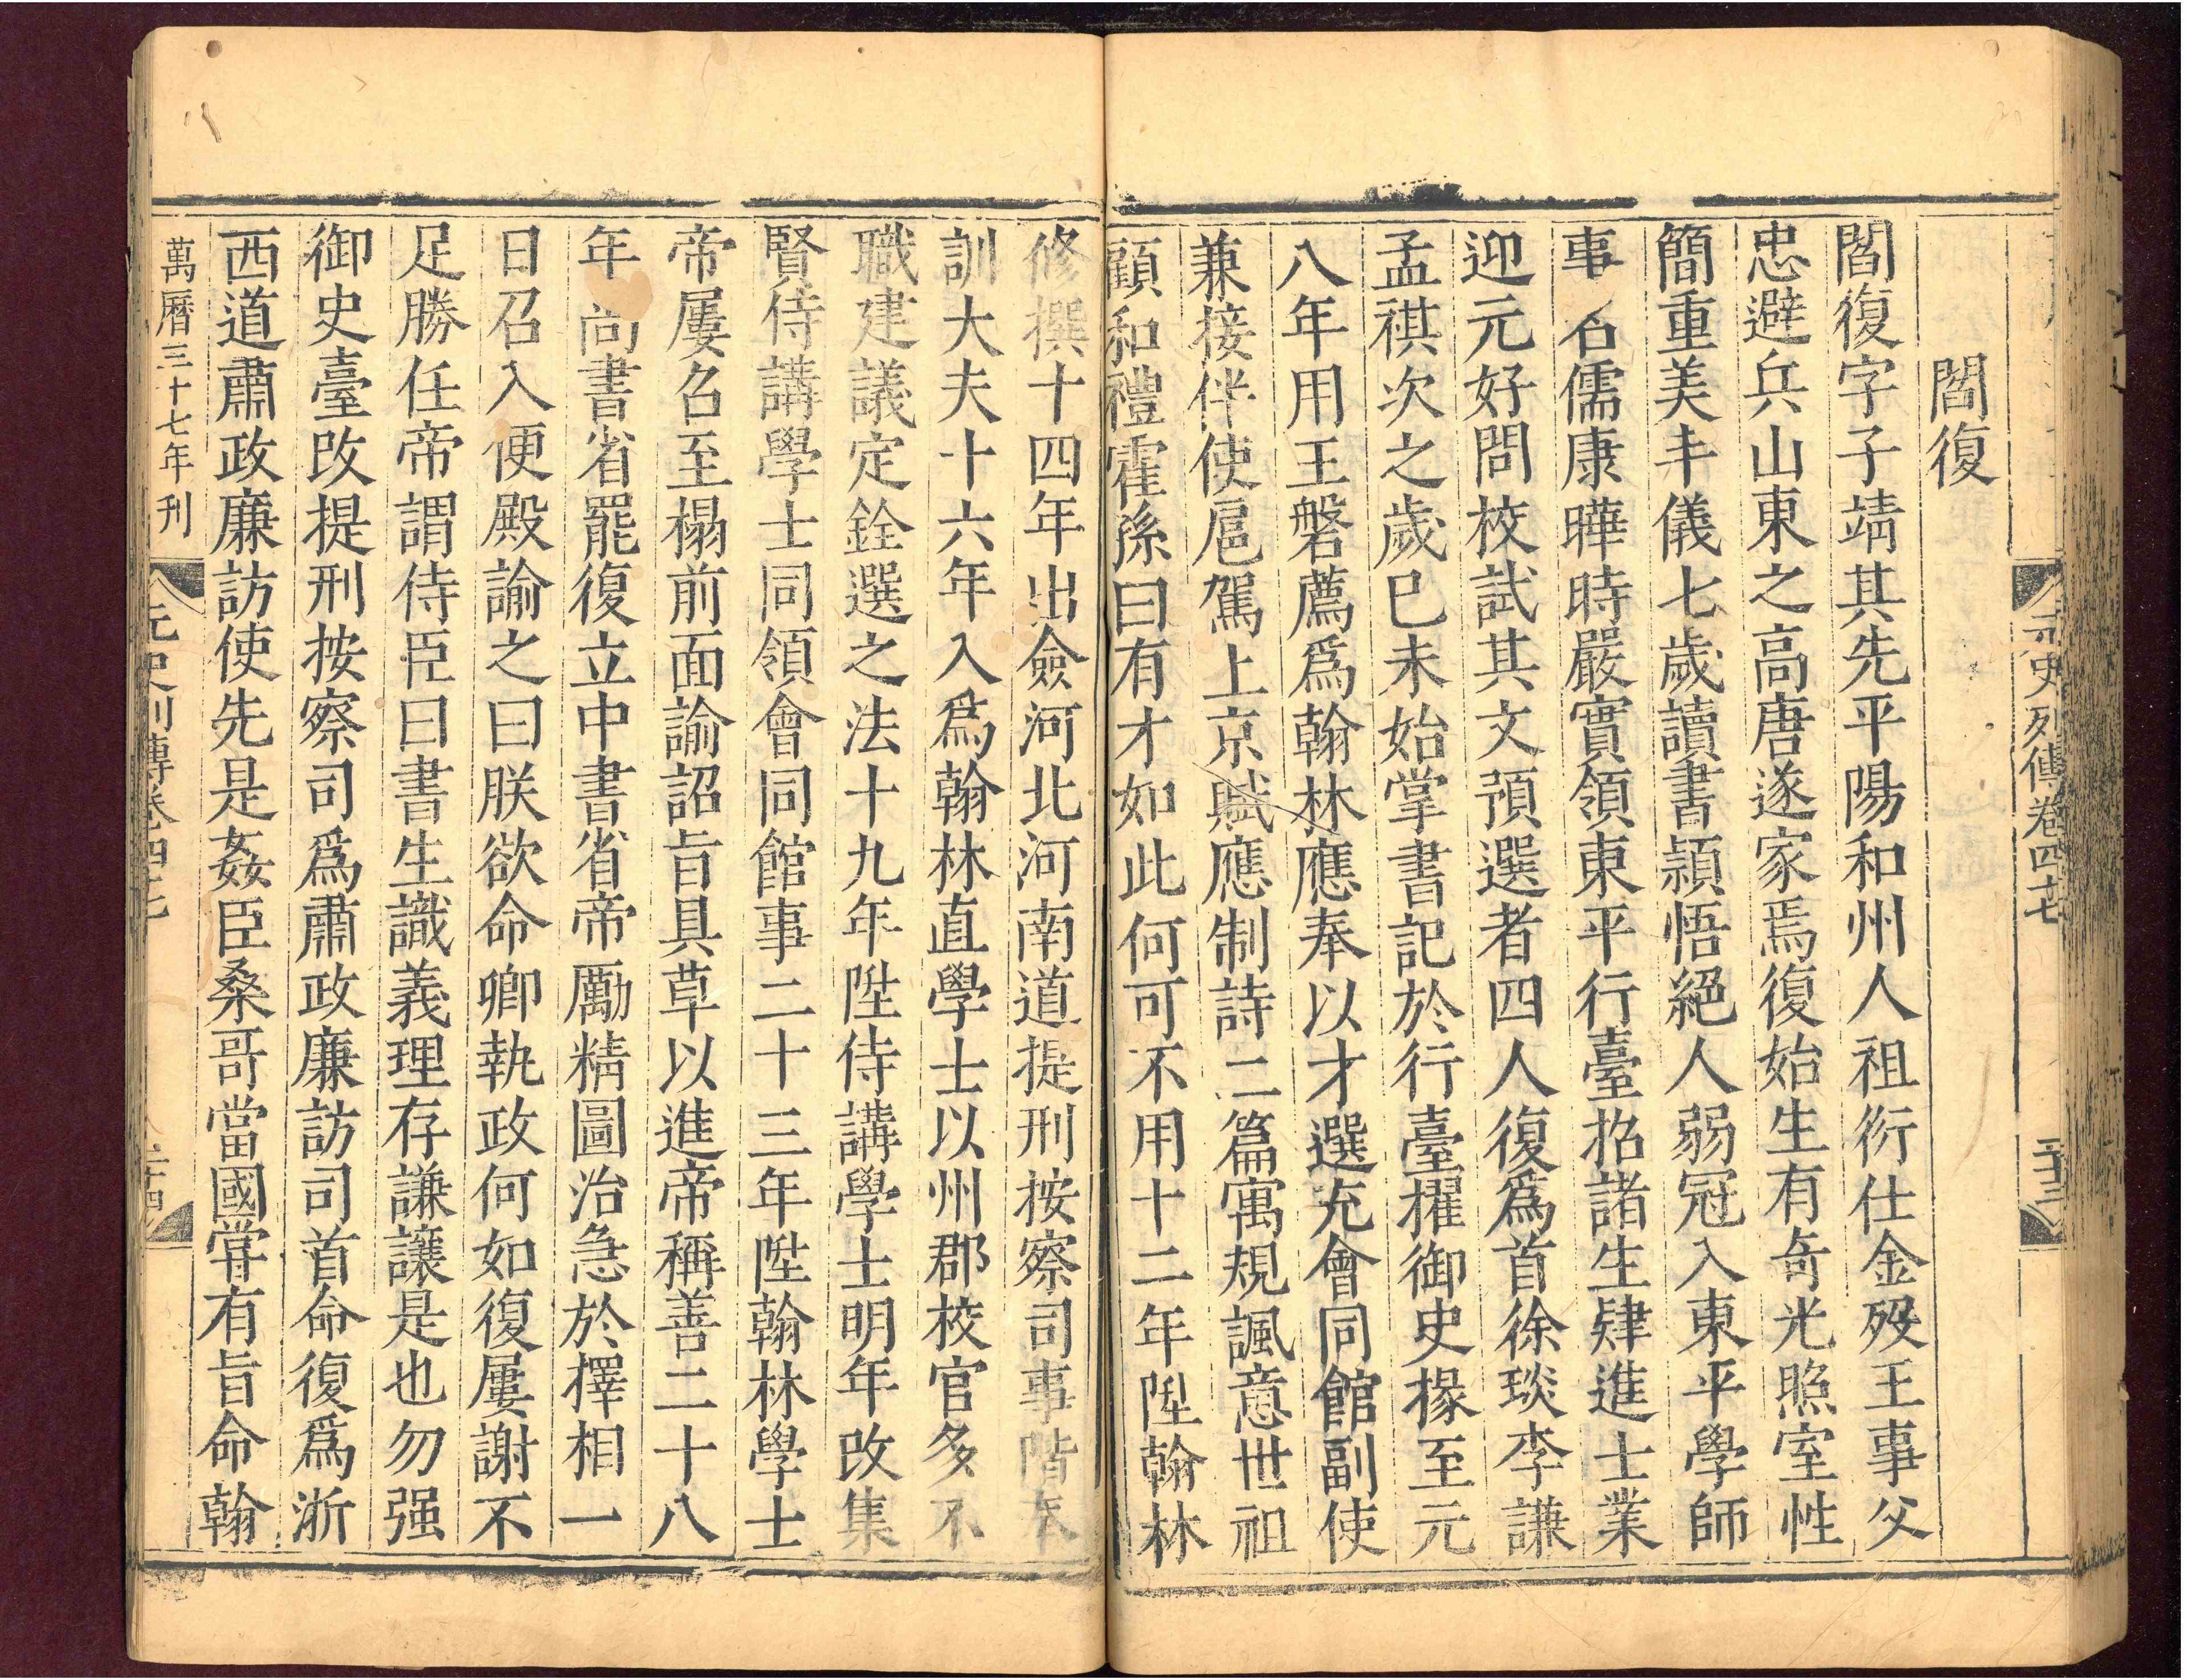 元史列傳卷四十七
二十三
閻復
閻復字子靖其先平陽和州人祖衍仕金歿王事父
忠避兵山東之高唐遂家焉復始生有奇光照室性
簡重美丰儀七歲讀書穎悟絕人弱冠入東平學師
事名儒康曄時嚴實領東平行臺招諸生肄進士業
迎元好問校試其文預選者四人復爲首徐琰李謙
孟祺次之歲巳未始掌書記於行臺擢御史掾至元
八年用王磐薦爲翰林應奉以才選充會同館副使
兼接伴使扈駕上京賦應制詩二篇寓規諷意世祖
顧和禮霍孫曰有才如此何可不用十二年陞翰林
修撰十四年出僉河北河南道提刑按察司事階奉
訓大夫十六年入爲翰林直學士以州郡校官多不
職建議定銓選之法十九年陞侍講學士明年改集
賢侍講學士同領會同館事二十三年陞翰林學士
帝屢召至榻前面諭詔旨具草以進帝稱善二十八
年尚書省罷復立中書省帝勵精圖治急於擇相一
日召入便殿諭之曰朕欲命卿執政何如復屢謝不
足勝任帝謂侍臣曰書生識義理存謙讓是也勿强
御史臺改提刑按察司爲肅政廉訪司首命復爲浙
西道肅政廉訪使先是姦臣桑哥當國嘗有旨命翰
萬曆三十七年刊
元史列傳卷四十七
二十四